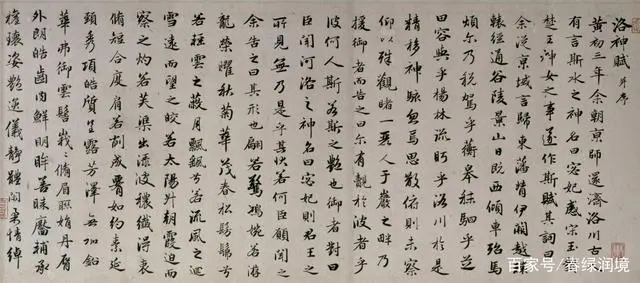 洛神賦 并序
黃初三年余朝京師還濟洛川古人
有言斯水之神名曰宓妃感宋玉對
楚王神女之事遂作斯賦其詞曰
余從京域言歸東藩背伊闕越轘
轅經通谷陵景山日既西傾車殆馬
煩爾乃稅駕乎蘅皋秣駟乎芝
田容與乎楊林流眄乎洛川於是
精移神駭忽焉思散俯則未察
仰以殊觀睹一麗人于巖之畔乃
援御者而告之曰爾有覿於彼者乎
彼何人斯若斯之艷也御者對曰
臣聞河洛之神名曰宓妃則君王之
所見無乃是乎其狀若何臣願聞之
余告之曰其形也翩若驚鴻婉若游
龍榮曜秋菊華茂春松髣髴兮
若輕雲之蔽月飄飄兮若流風之迴
雪遠而望之皎若太陽升朝霞迫而
察之灼若芙蕖出淥波穠纖得衷
脩短合度肩若削成腰如約素延
頸秀項皓質呈露芳澤無加鉛
華弗御雲髻峩峩脩眉聯娟丹脣
外朗皓齒內鮮明眸善睞靨輔承
權瓌姿豔逸儀靜體閑柔情綽
百家号/春绿润境